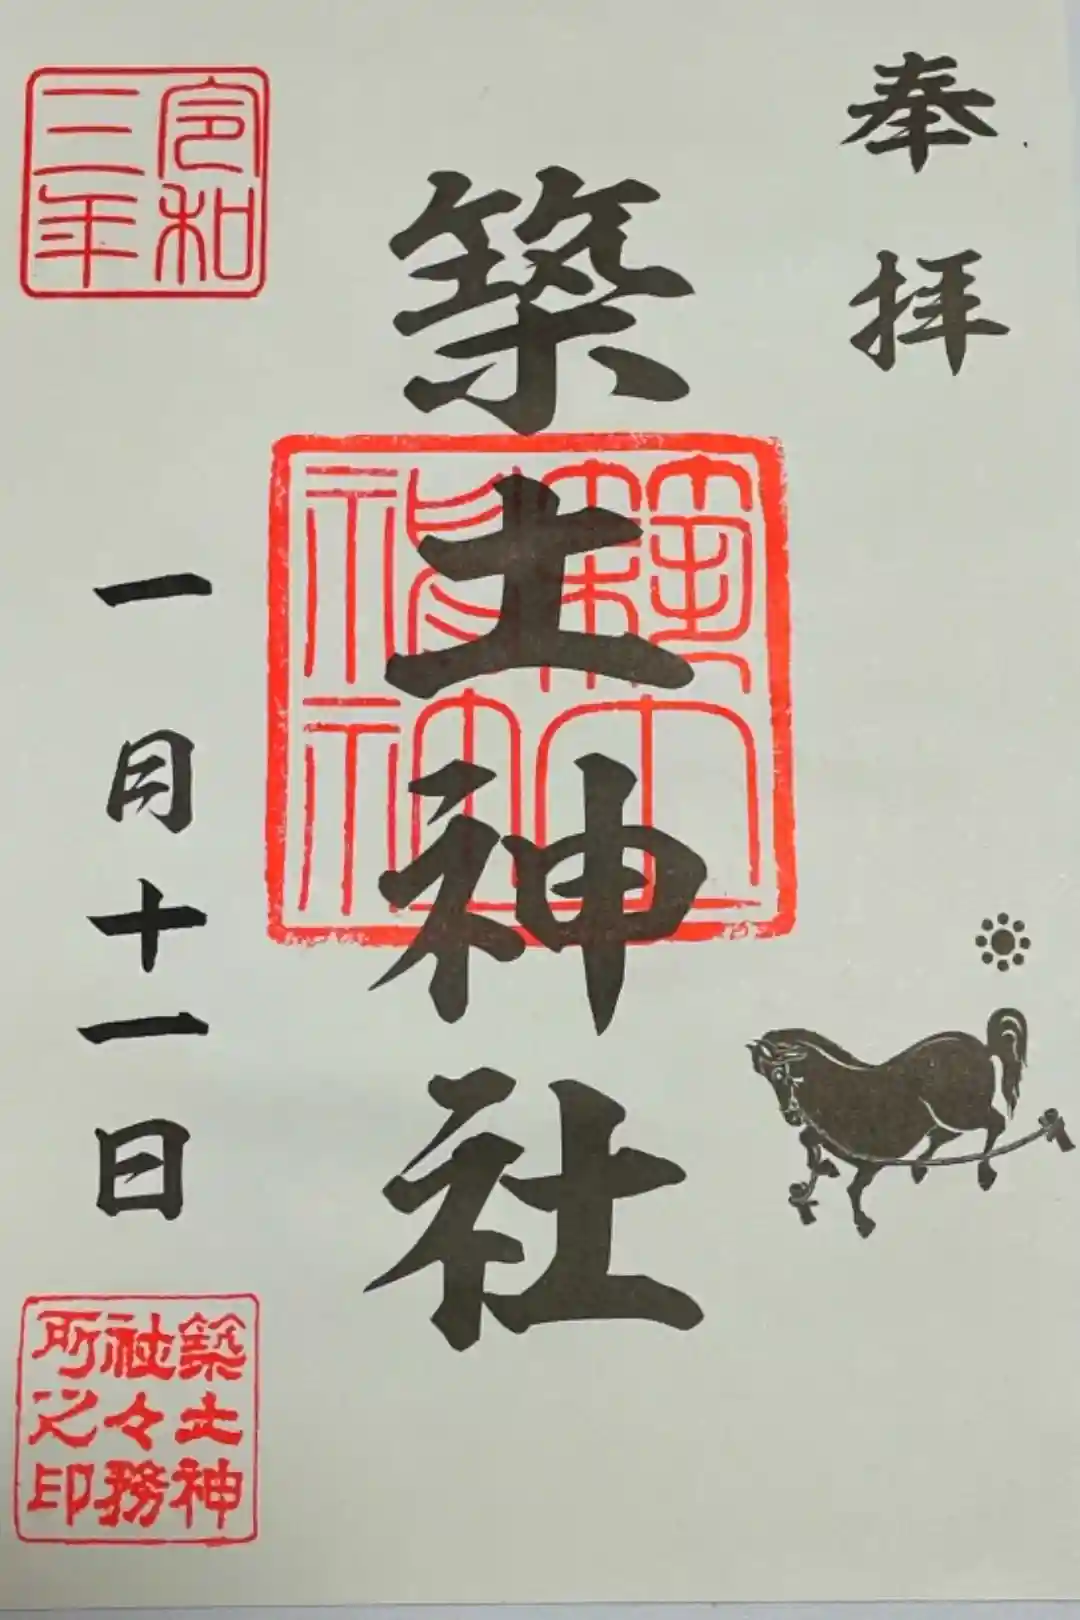 奉拝
築土神社
築土神社
令和三年
一月十一日
築土神社々務所之印